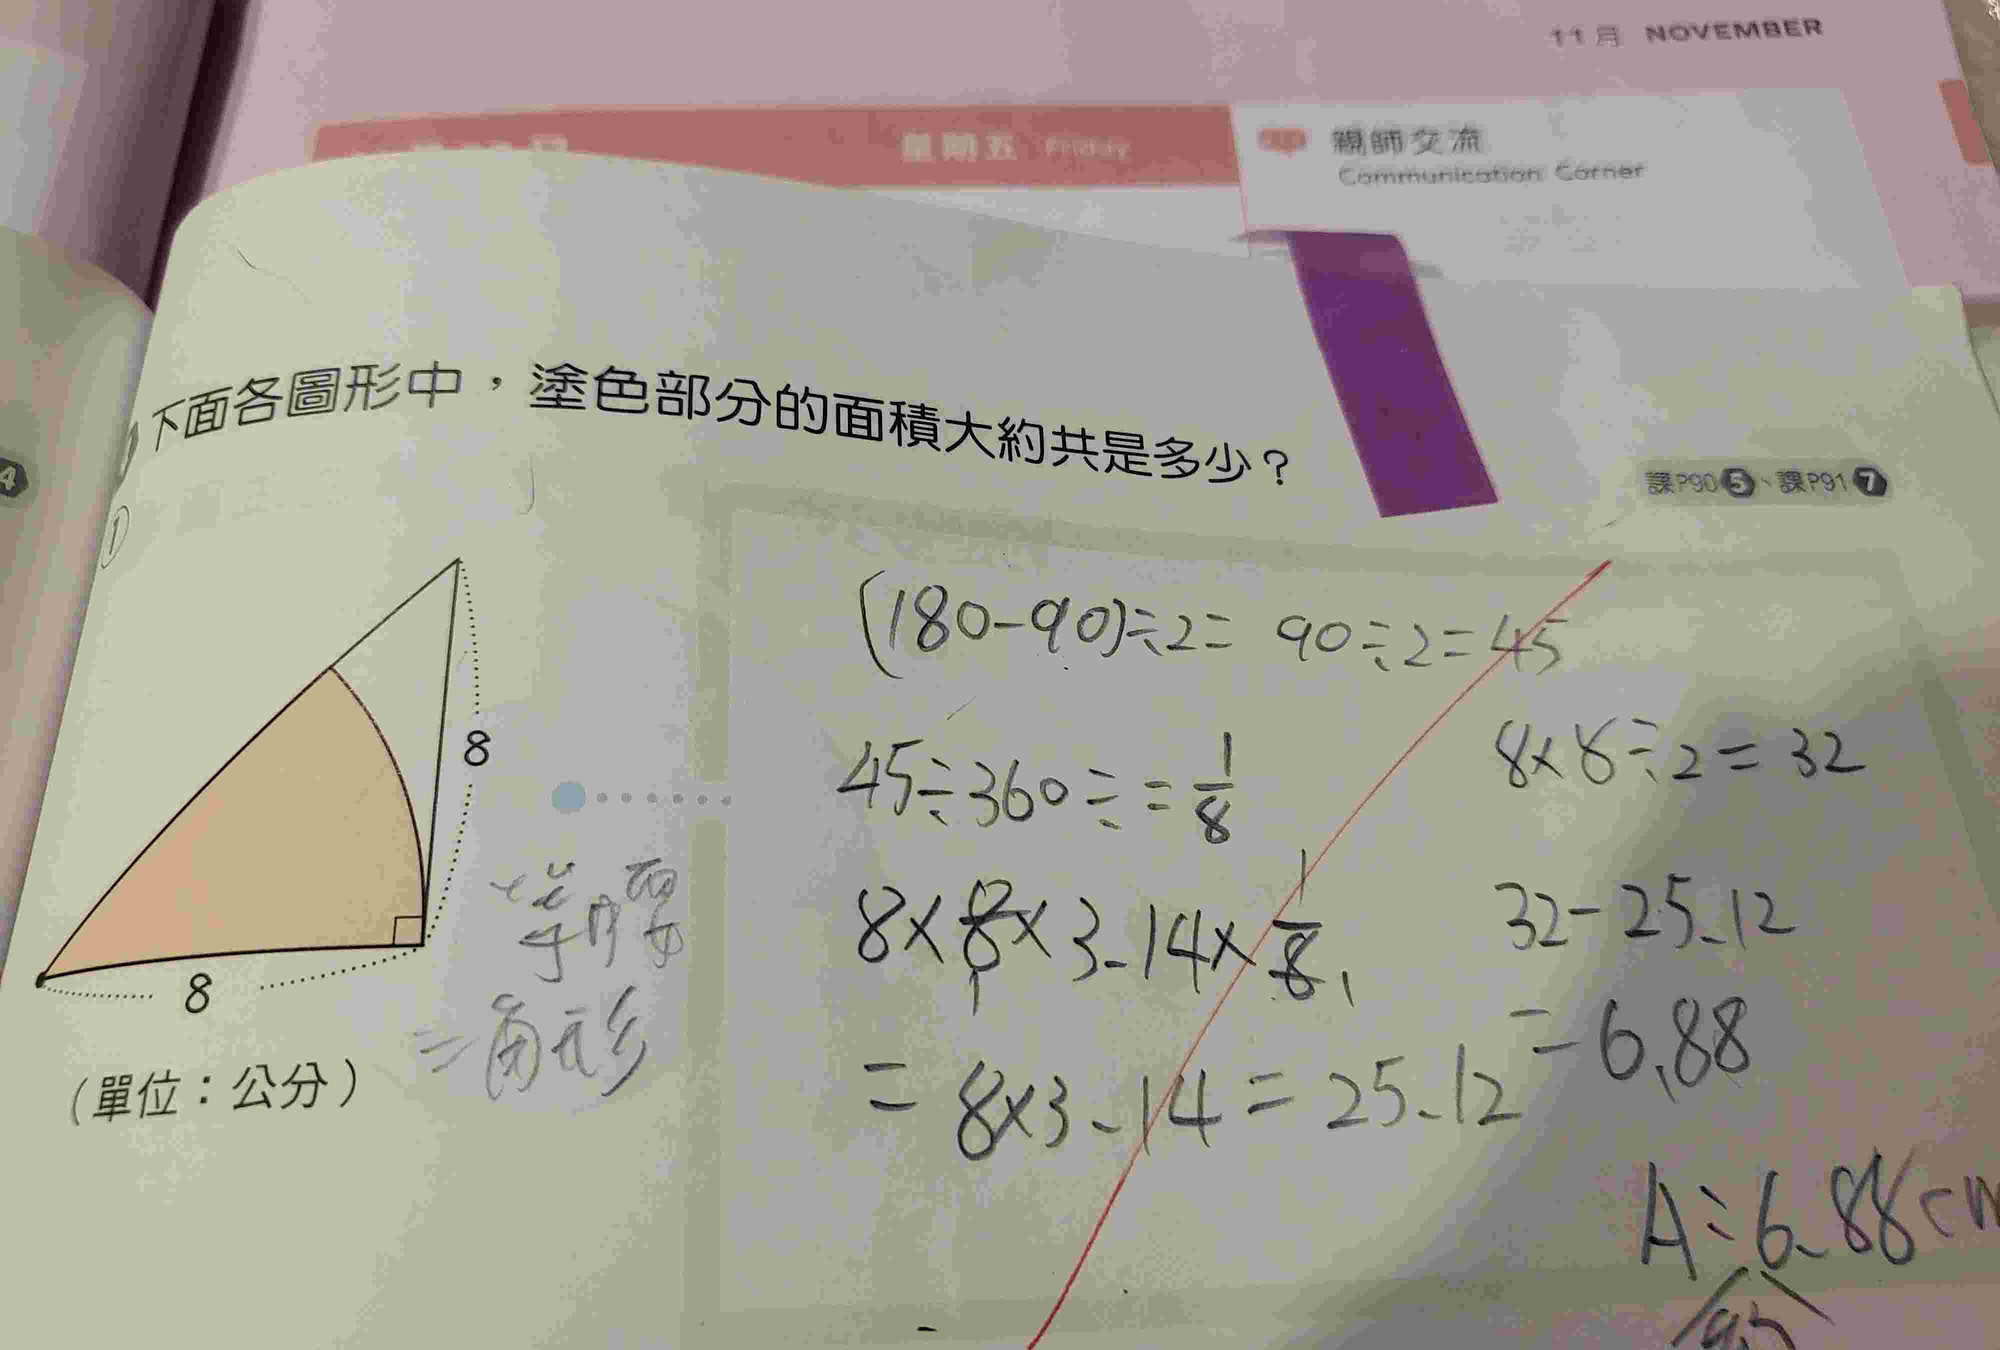 11月 NOVEMBER
星期五 Friday
親師交流
Communication Corner
4
下面各圖形中，塗色部分的面積大約共是多少？
課P90 5、課P91 7
1
8
8
(單位：公分)
等腰
三角形
(180-90)÷2= 90÷2=45
45÷360÷=1/8
8×8×3.14×1/8
=8×3.14=25.12
8×8÷2=32
32-25.12
=6.88
A:6.88cm